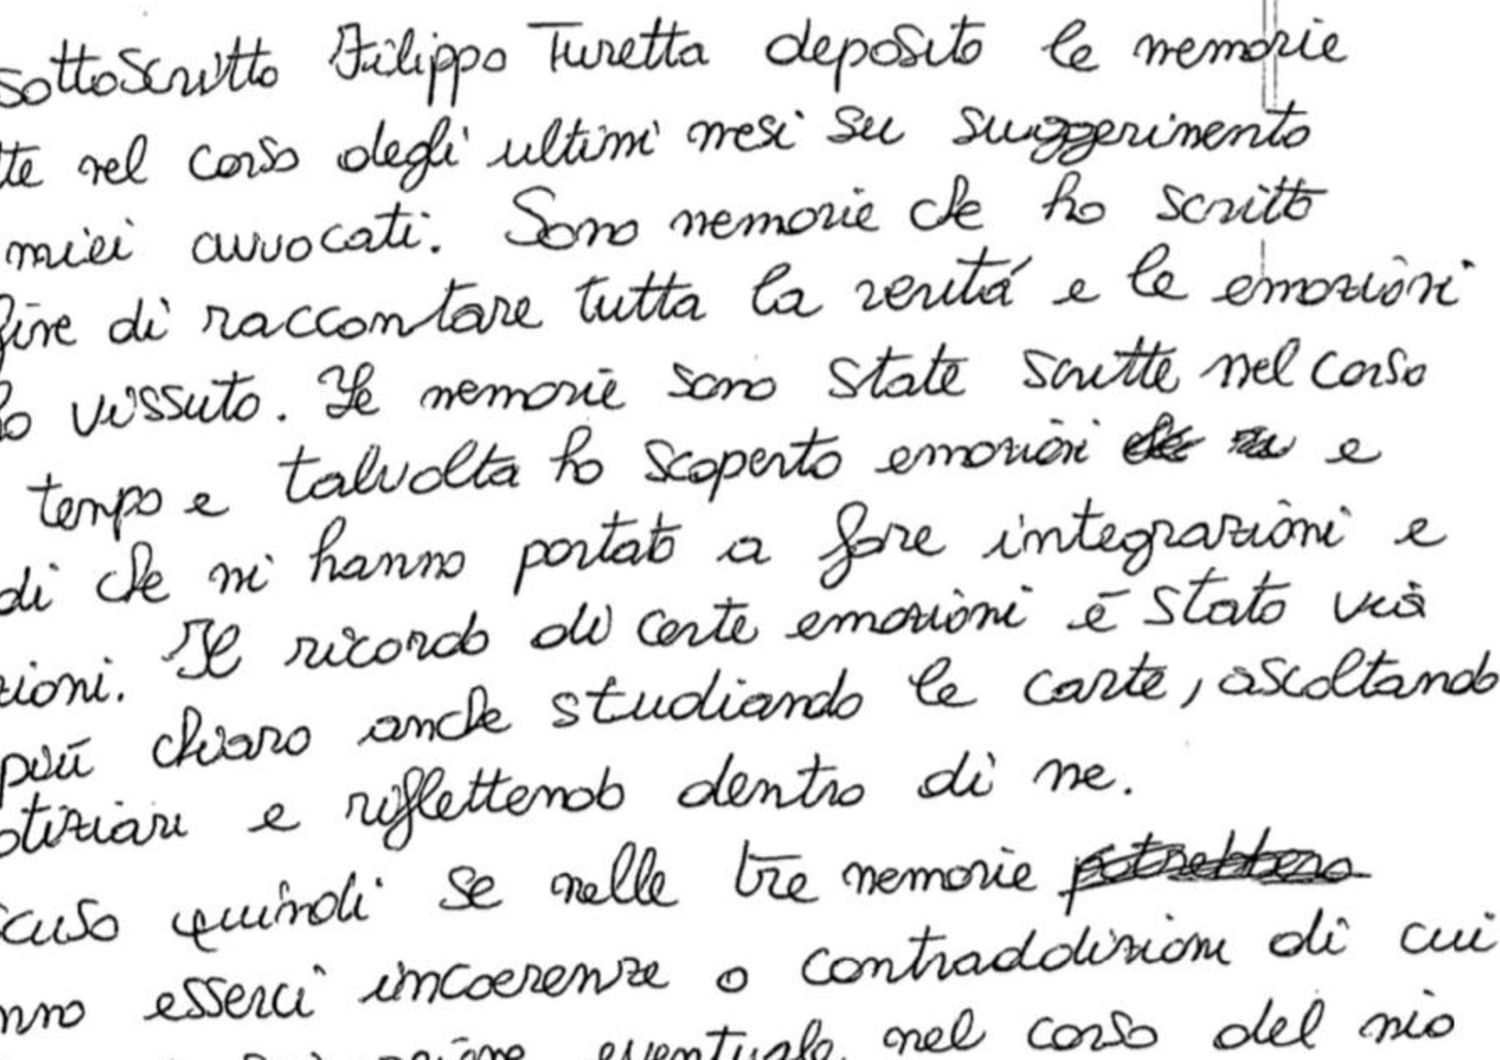 sottoscritto Filippo Turetta deposito le memorie
tte nel corso degli ultimi mesi su suggerimento
miei avvocati. Sono memorie che ho scritto
fine di raccontare tutta la verità e le emozioni
ho vissuto. Le memorie sono state scritte nel corso
tempo e talvolta ho scoperto emozioni e
di che mi hanno portato a fare integrazioni e
zioni. Il ricordo di certe emozioni è stato via
più chiaro anche studiando le carte, ascoltando
otiziari e riflettendo dentro di me.
scuso quindi se nelle tre memorie potrebbero
nno esserci incoerenze o contraddizioni di cui
eventuale nel corso del mio